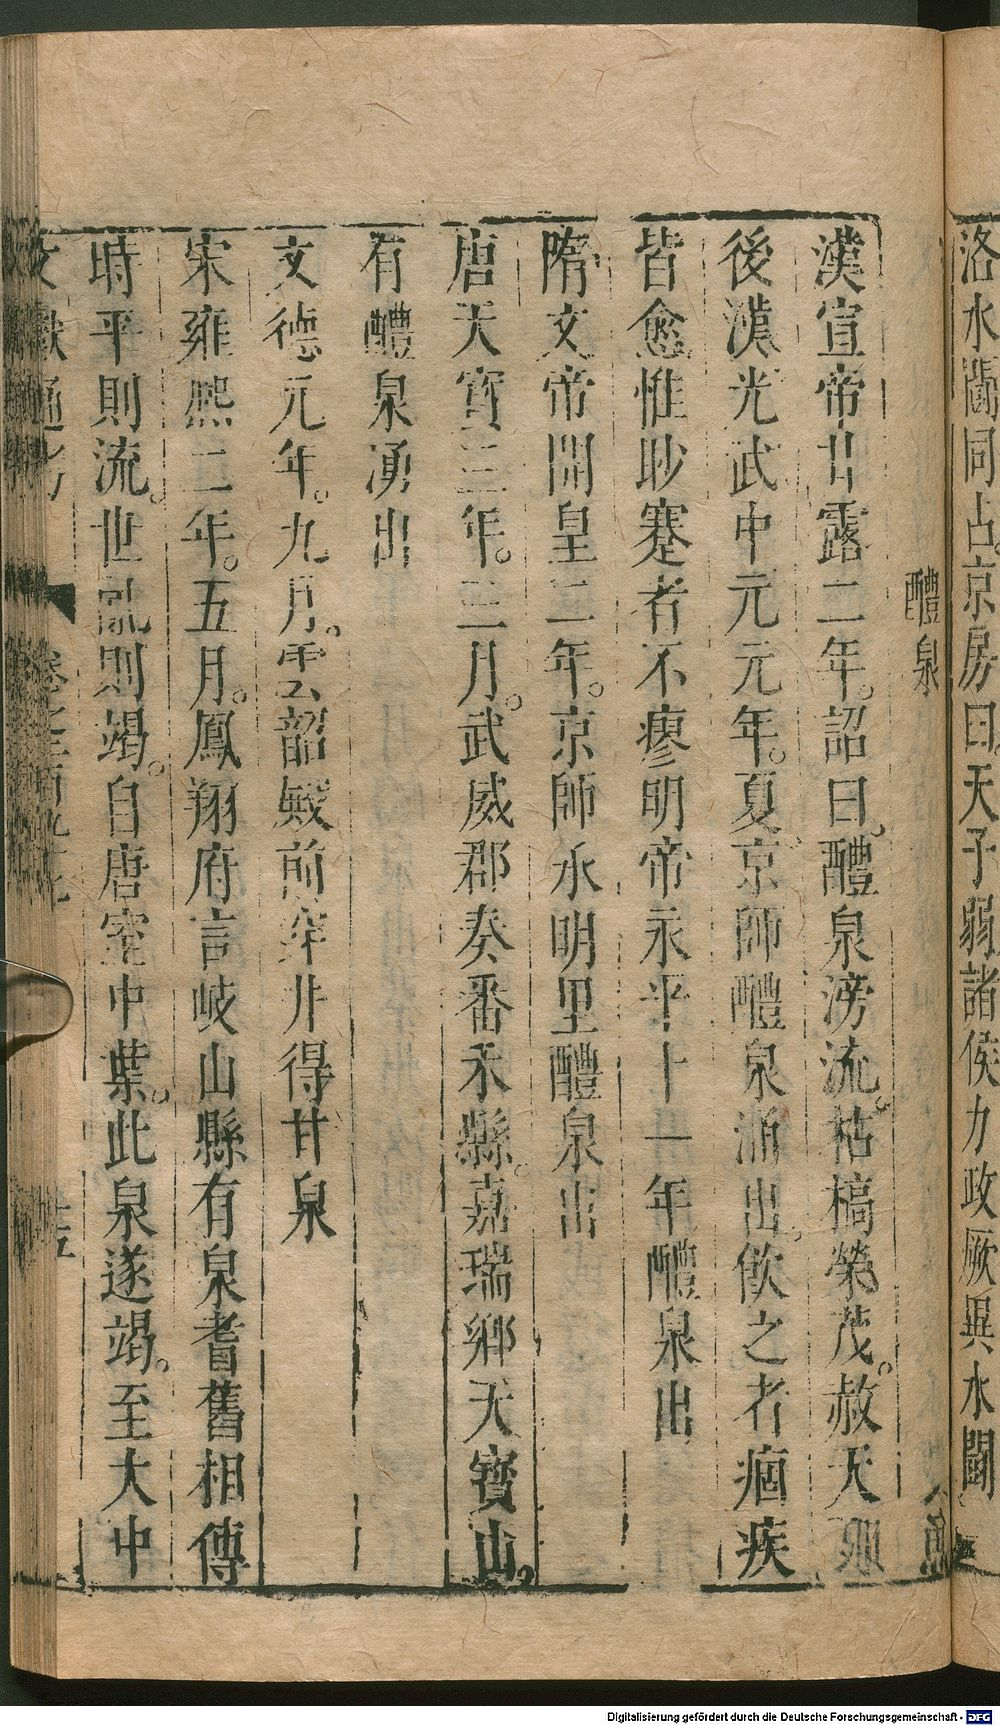 洛水鬭同占京房曰天子弱諸侯力政厥異水鬭
醴泉
漢宣帝甘露二年。詔曰。醴泉滂流。枯槁榮茂。赦天
後漢光武中元元年。夏。京師醴泉涌出。飲之者痼疾
皆愈惟眇蹇者不瘳明帝永平十一年醴泉出
隋文帝開皇二年。京師永明里醴泉出
唐天寶三年。三月。武威郡奏番禾縣。嘉瑞鄉天寶山。
有醴泉湧出
文德元年。九月。雲韶殿前穿井得甘泉
宋雍熙二年。五月。鳳翔府言岐山縣有泉耆舊相傳
時平則流。世亂則竭。自唐室中葉。此泉遂竭。至大中
文獻通考
Digitalisierung gefördert durch die Deutsche Forschungsgemeinschaft - DFG